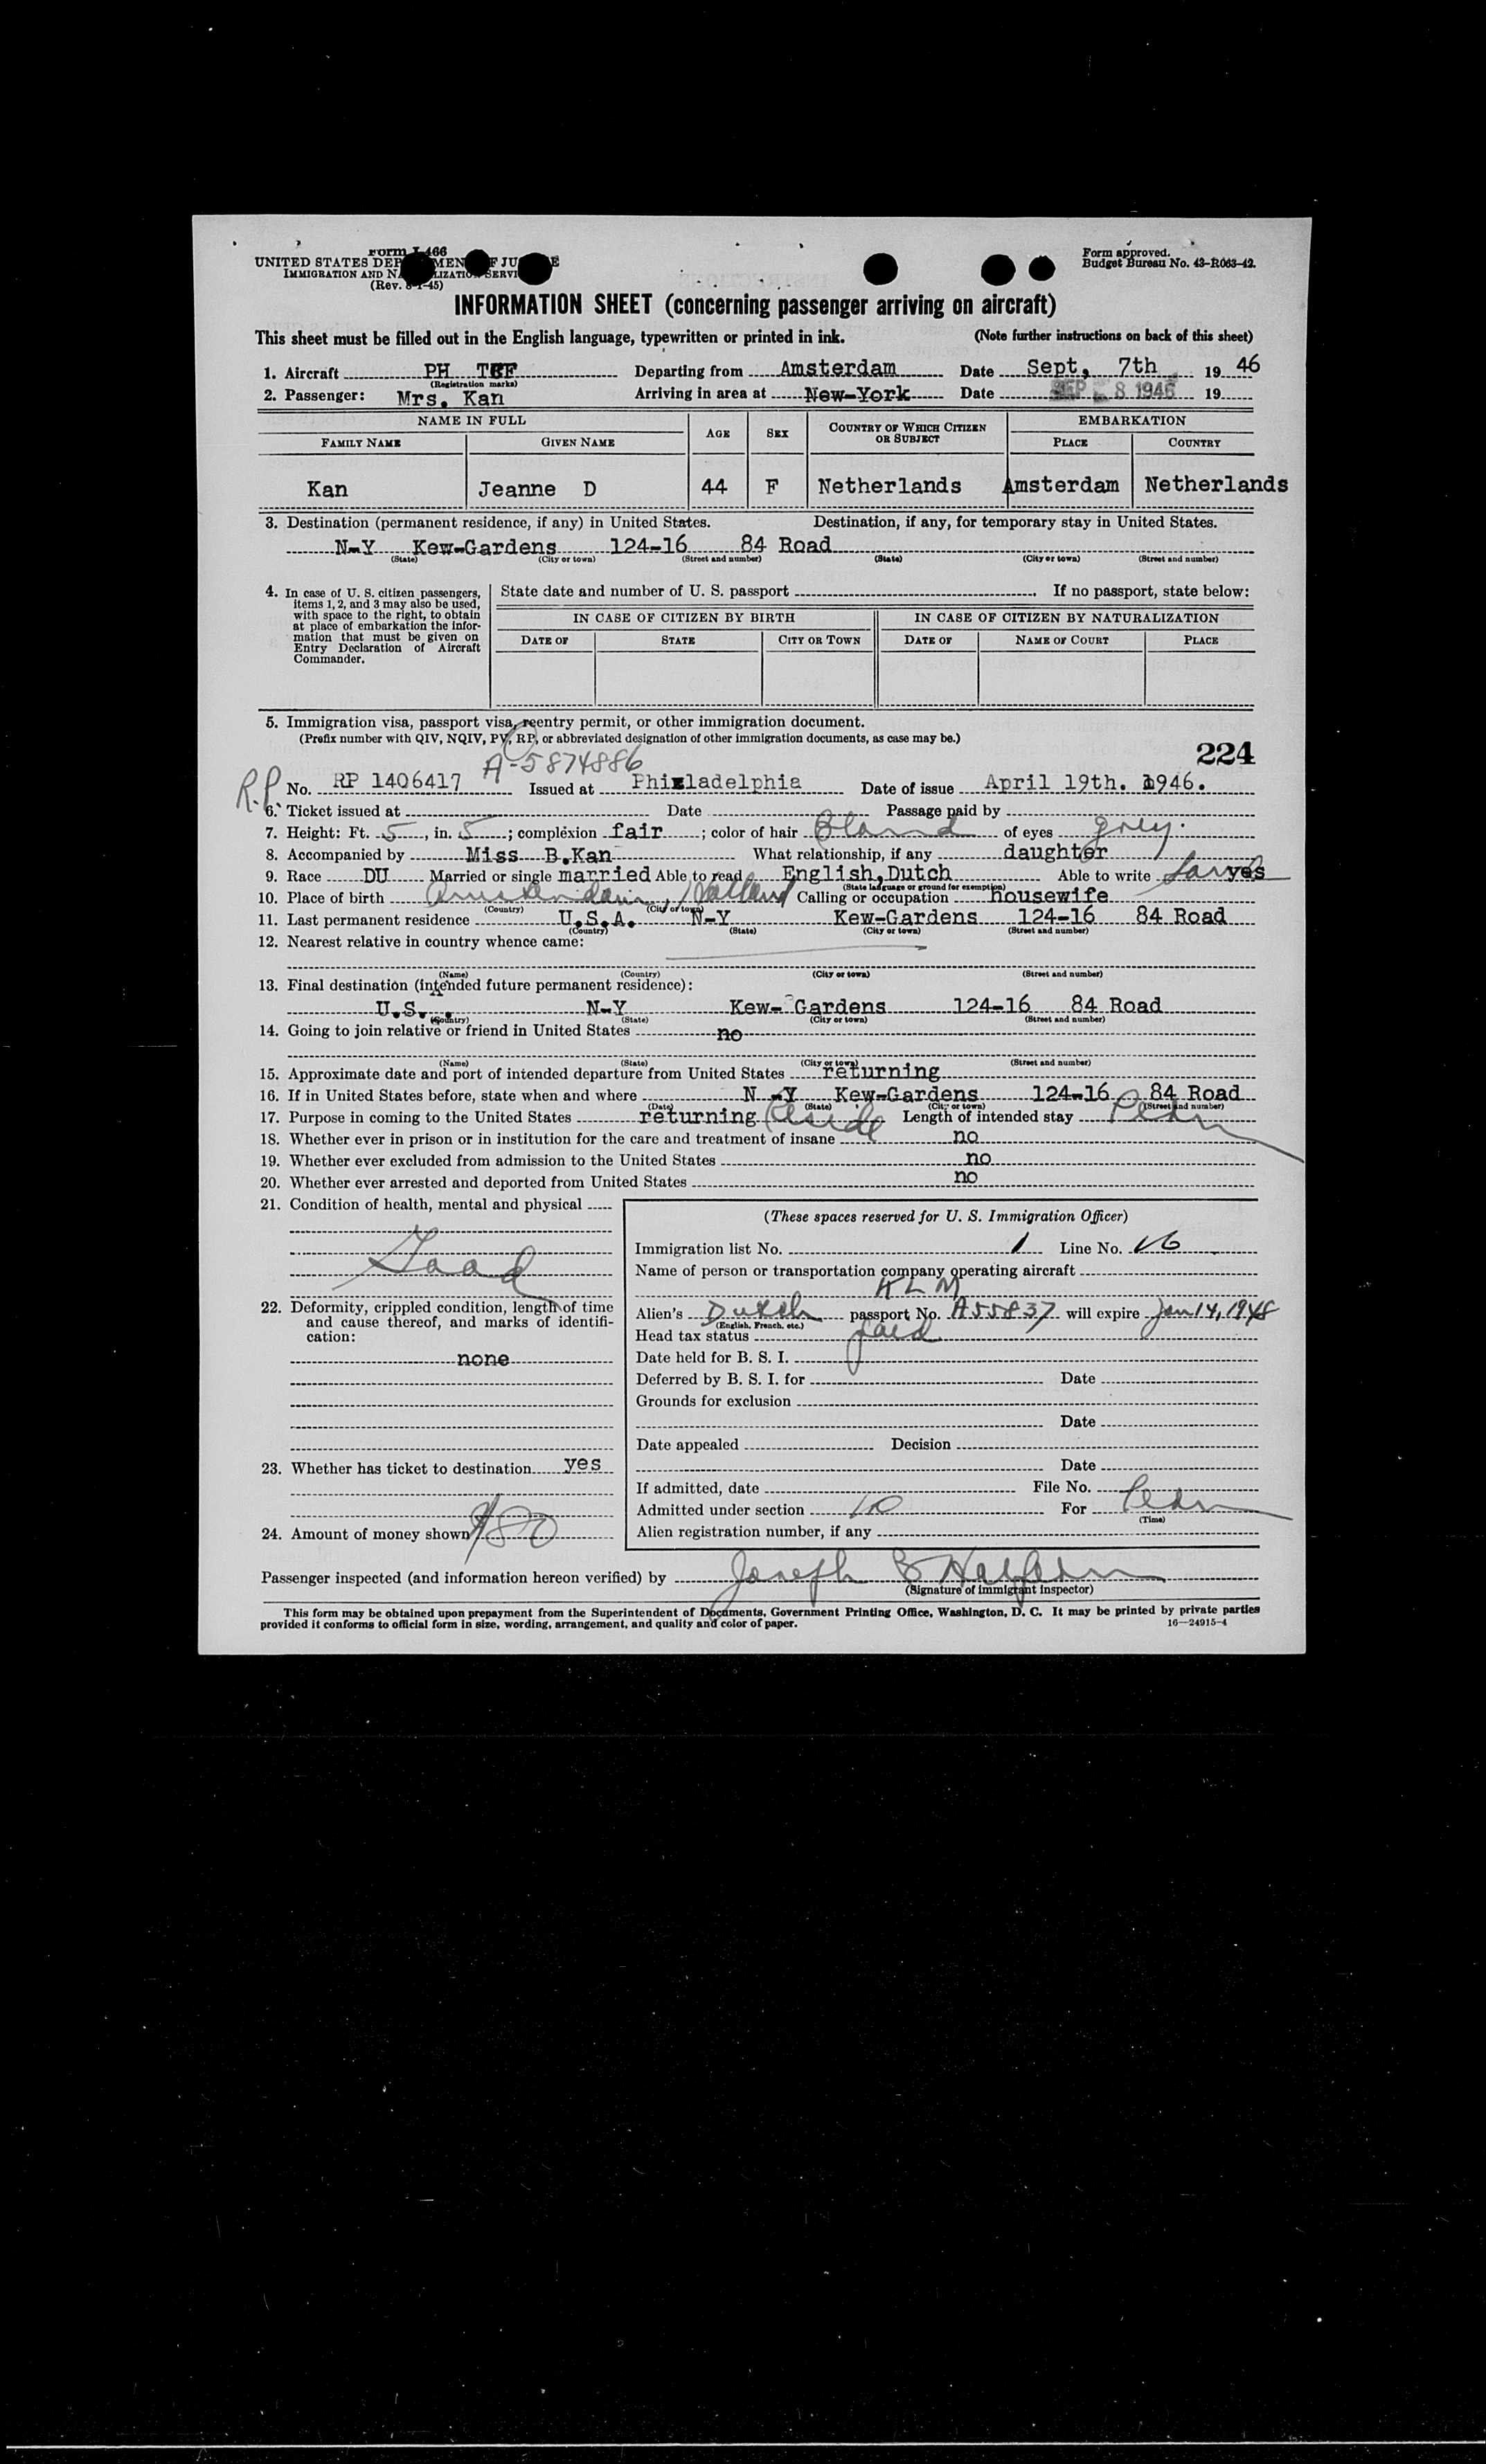 Form I-466
UNITED STATES DEPARTMENT OF JUSTICE
IMMIGRATION AND NATURALIZATION SERVICE
(Rev. 8-1-45)
Form approved.
Budget Bureau No. 43-R063-42.
INFORMATION SHEET (concerning passenger arriving on aircraft)
This sheet must be filled out in the English language, typewritten or printed in ink. (Note further instructions on back of this sheet)
1. Aircraft PH Departing from Amsterdam Date Sept, 7th 19 46
(Registration marks)
2. Passenger: Mrs. Kan Arriving in area at New-York Date SEP 8 1946 19
NAME IN FULL AGE SEX COUNTRY OF WHICH CITIZEN OR SUBJECT EMBARKATION
FAMILY NAME GIVEN NAME PLACE COUNTRY
Kan Jeanne D 44 F Netherlands Amsterdam Netherlands
3. Destination (permanent residence, if any) in United States. Destination, if any, for temporary stay in United States.
N-Y Kew-Gardens 124-16 84 Road
(State) (City or town) (Street and number) (State) (City or town) (Street and number)
4. In case of U. S. citizen passengers, items 1, 2, and 3 may also be used, with space to the right, to obtain at place of embarkation the information that must be given on Entry Declaration of Aircraft Commander.
State date and number of U. S. passport If no passport, state below:
IN CASE OF CITIZEN BY BIRTH IN CASE OF CITIZEN BY NATURALIZATION
DATE OF STATE CITY OR TOWN DATE OF NAME OF COURT PLACE
5. Immigration visa, passport visa, reentry permit, or other immigration document.
(Prefix number with QIV, NQIV, PV, RP, or abbreviated designation of other immigration documents, as case may be.)
224
A-5874886
R.P. No. RP 1406417 Issued at Philadelphia Date of issue April 19th. 1946.
6. Ticket issued at Date Passage paid by
7. Height: Ft. 5, in. 5; complexion fair; color of hair Blond of eyes grey.
8. Accompanied by Miss B.Kan What relationship, if any daughter
9. Race DU Married or single married Able to read English,Dutch Able to write yes
(State language or ground for exemption)
10. Place of birth Amsterdam, Holland Calling or occupation housewife
(Country) (City or town)
11. Last permanent residence U.S.A. N-Y Kew-Gardens 124-16 84 Road
(Country) (State) (City or town) (Street and number)
12. Nearest relative in country whence came:
(Name) (Country) (City or town) (Street and number)
13. Final destination (intended future permanent residence):
U.S. N-Y Kew- Gardens 124-16 84 Road
(Country) (State) (City or town) (Street and number)
14. Going to join relative or friend in United States no
(Name) (State) (City or town) (Street and number)
15. Approximate date and port of intended departure from United States returning
16. If in United States before, state when and where N-Y Kew-Gardens 124-16 84 Road
(Date) (State) (City or town) (Street and number)
17. Purpose in coming to the United States returning reside Length of intended stay Perm
18. Whether ever in prison or in institution for the care and treatment of insane no
19. Whether ever excluded from admission to the United States no
20. Whether ever arrested and deported from United States no
21. Condition of health, mental and physical
Good
22. Deformity, crippled condition, length of time and cause thereof, and marks of identification:
none
23. Whether has ticket to destination yes
24. Amount of money shown
(These spaces reserved for U. S. Immigration Officer)
Immigration list No. 1 Line No. 16
Name of person or transportation company operating aircraft
KLM
Alien's Dutch passport No. A55837 will expire Jan 14, 1948
(English, French, etc.)
Head tax status paid
Date held for B. S. I.
Deferred by B. S. I. for Date
Grounds for exclusion
Date
Date appealed Decision
Date
If admitted, date File No.
Admitted under section For Perm
(Time)
Alien registration number, if any
Passenger inspected (and information hereon verified) by Joseph
(Signature of immigrant inspector)
This form may be obtained upon prepayment from the Superintendent of Documents, Government Printing Office, Washington, D. C. It may be printed by private parties
provided it conforms to official form in size, wording, arrangement, and quality and color of paper. 16—24915-4